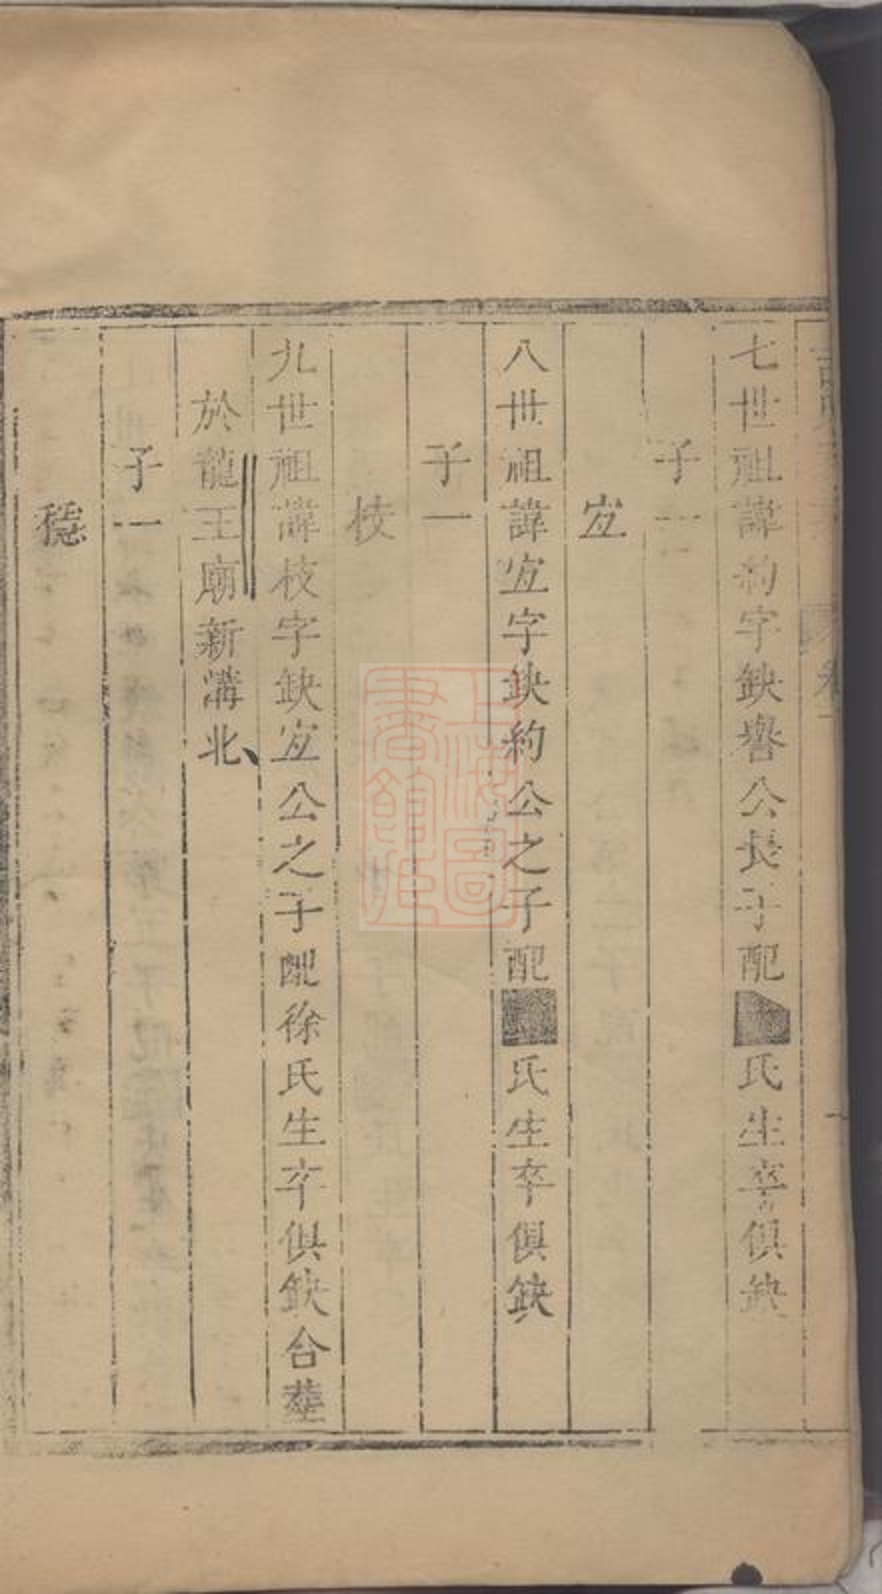 七世祖諱約字缺譽公長子配氏生卒俱缺
子一
宐
八世祖諱宐字缺約公之子配氏生卒俱缺
子一
枝
九世祖諱枝字缺宐公之子配徐氏生卒俱缺合塟
於龍王廟新溝北
子一
穩
上海圖書館藏